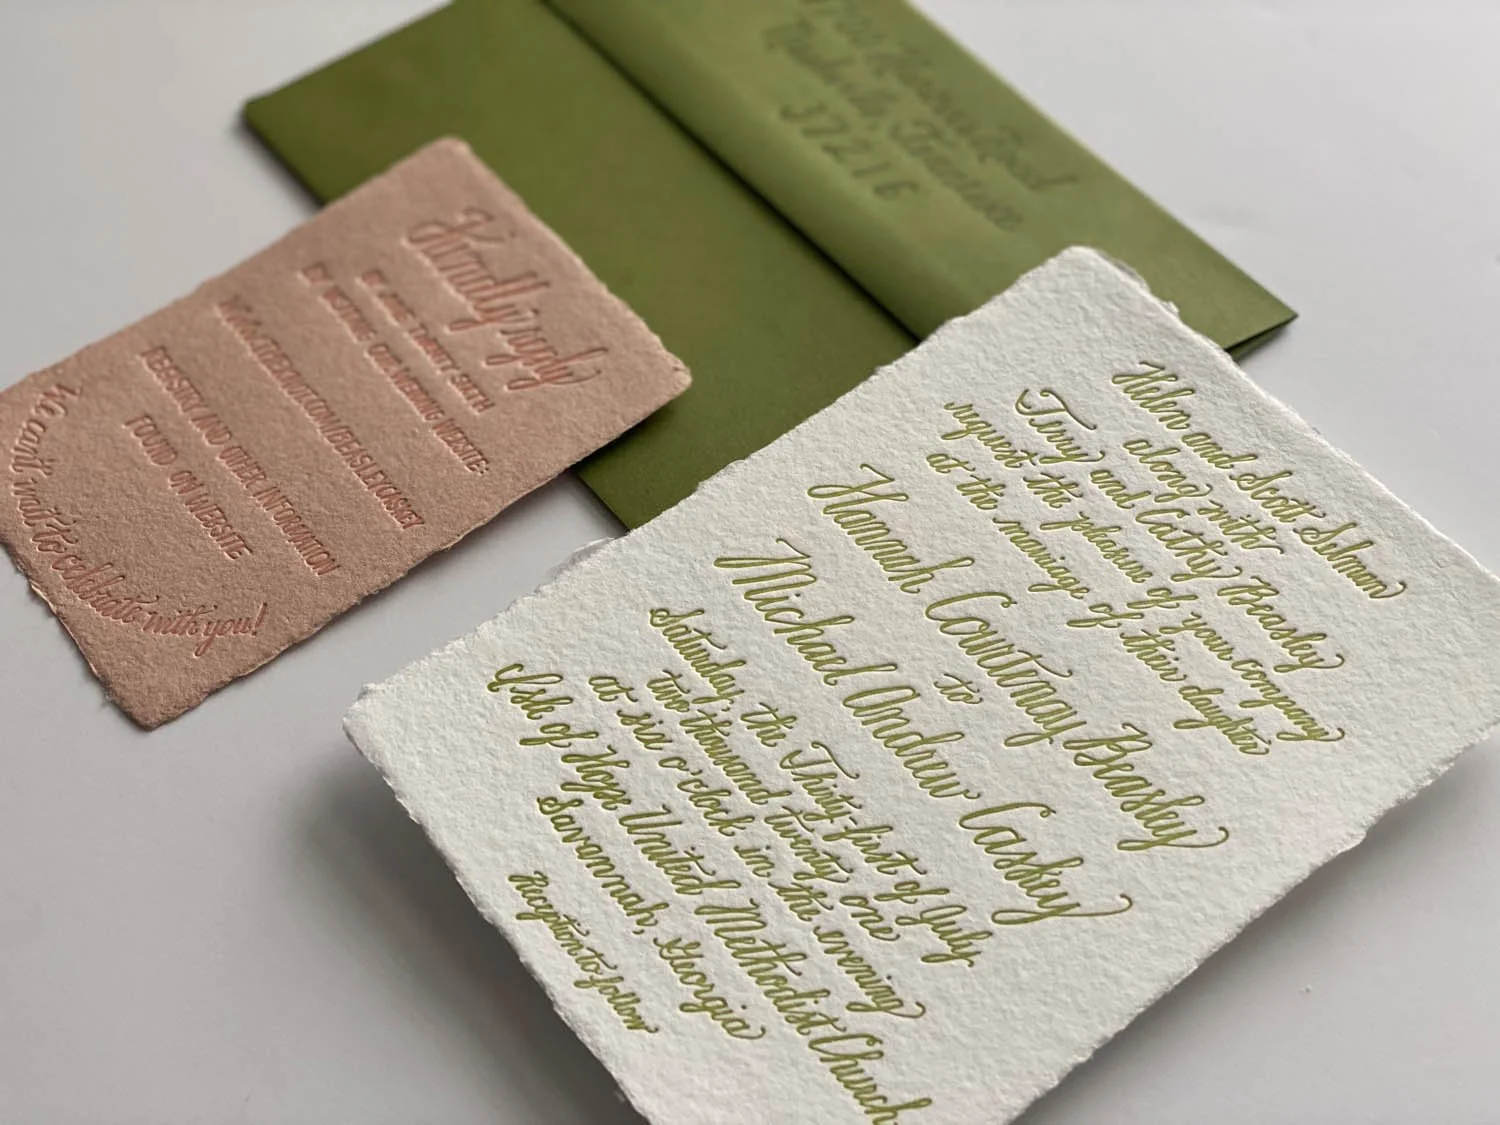 Nashville, Tennessee
37216
Kindly reply
BY JUNE TWENTY SIXTH
BY VISITING OUR WEDDING WEBSITE:
REGISTRY AND OTHER INFORMATION
FOUND ON WEBSITE
We can't wait to celebrate with you!
Helen and Scott Selman
along with
Terry and Cathy Beassley
request the pleasure of your company
at the marriage of their daughter
Hannah Courtney Beassley
to
Michael Andrew Caskey
Saturday, the Thirty-first of July
two thousand twenty one
at six o'clock in the evening
Isle of Hope United Methodist Church
Savannah, Georgia
Reception to follow